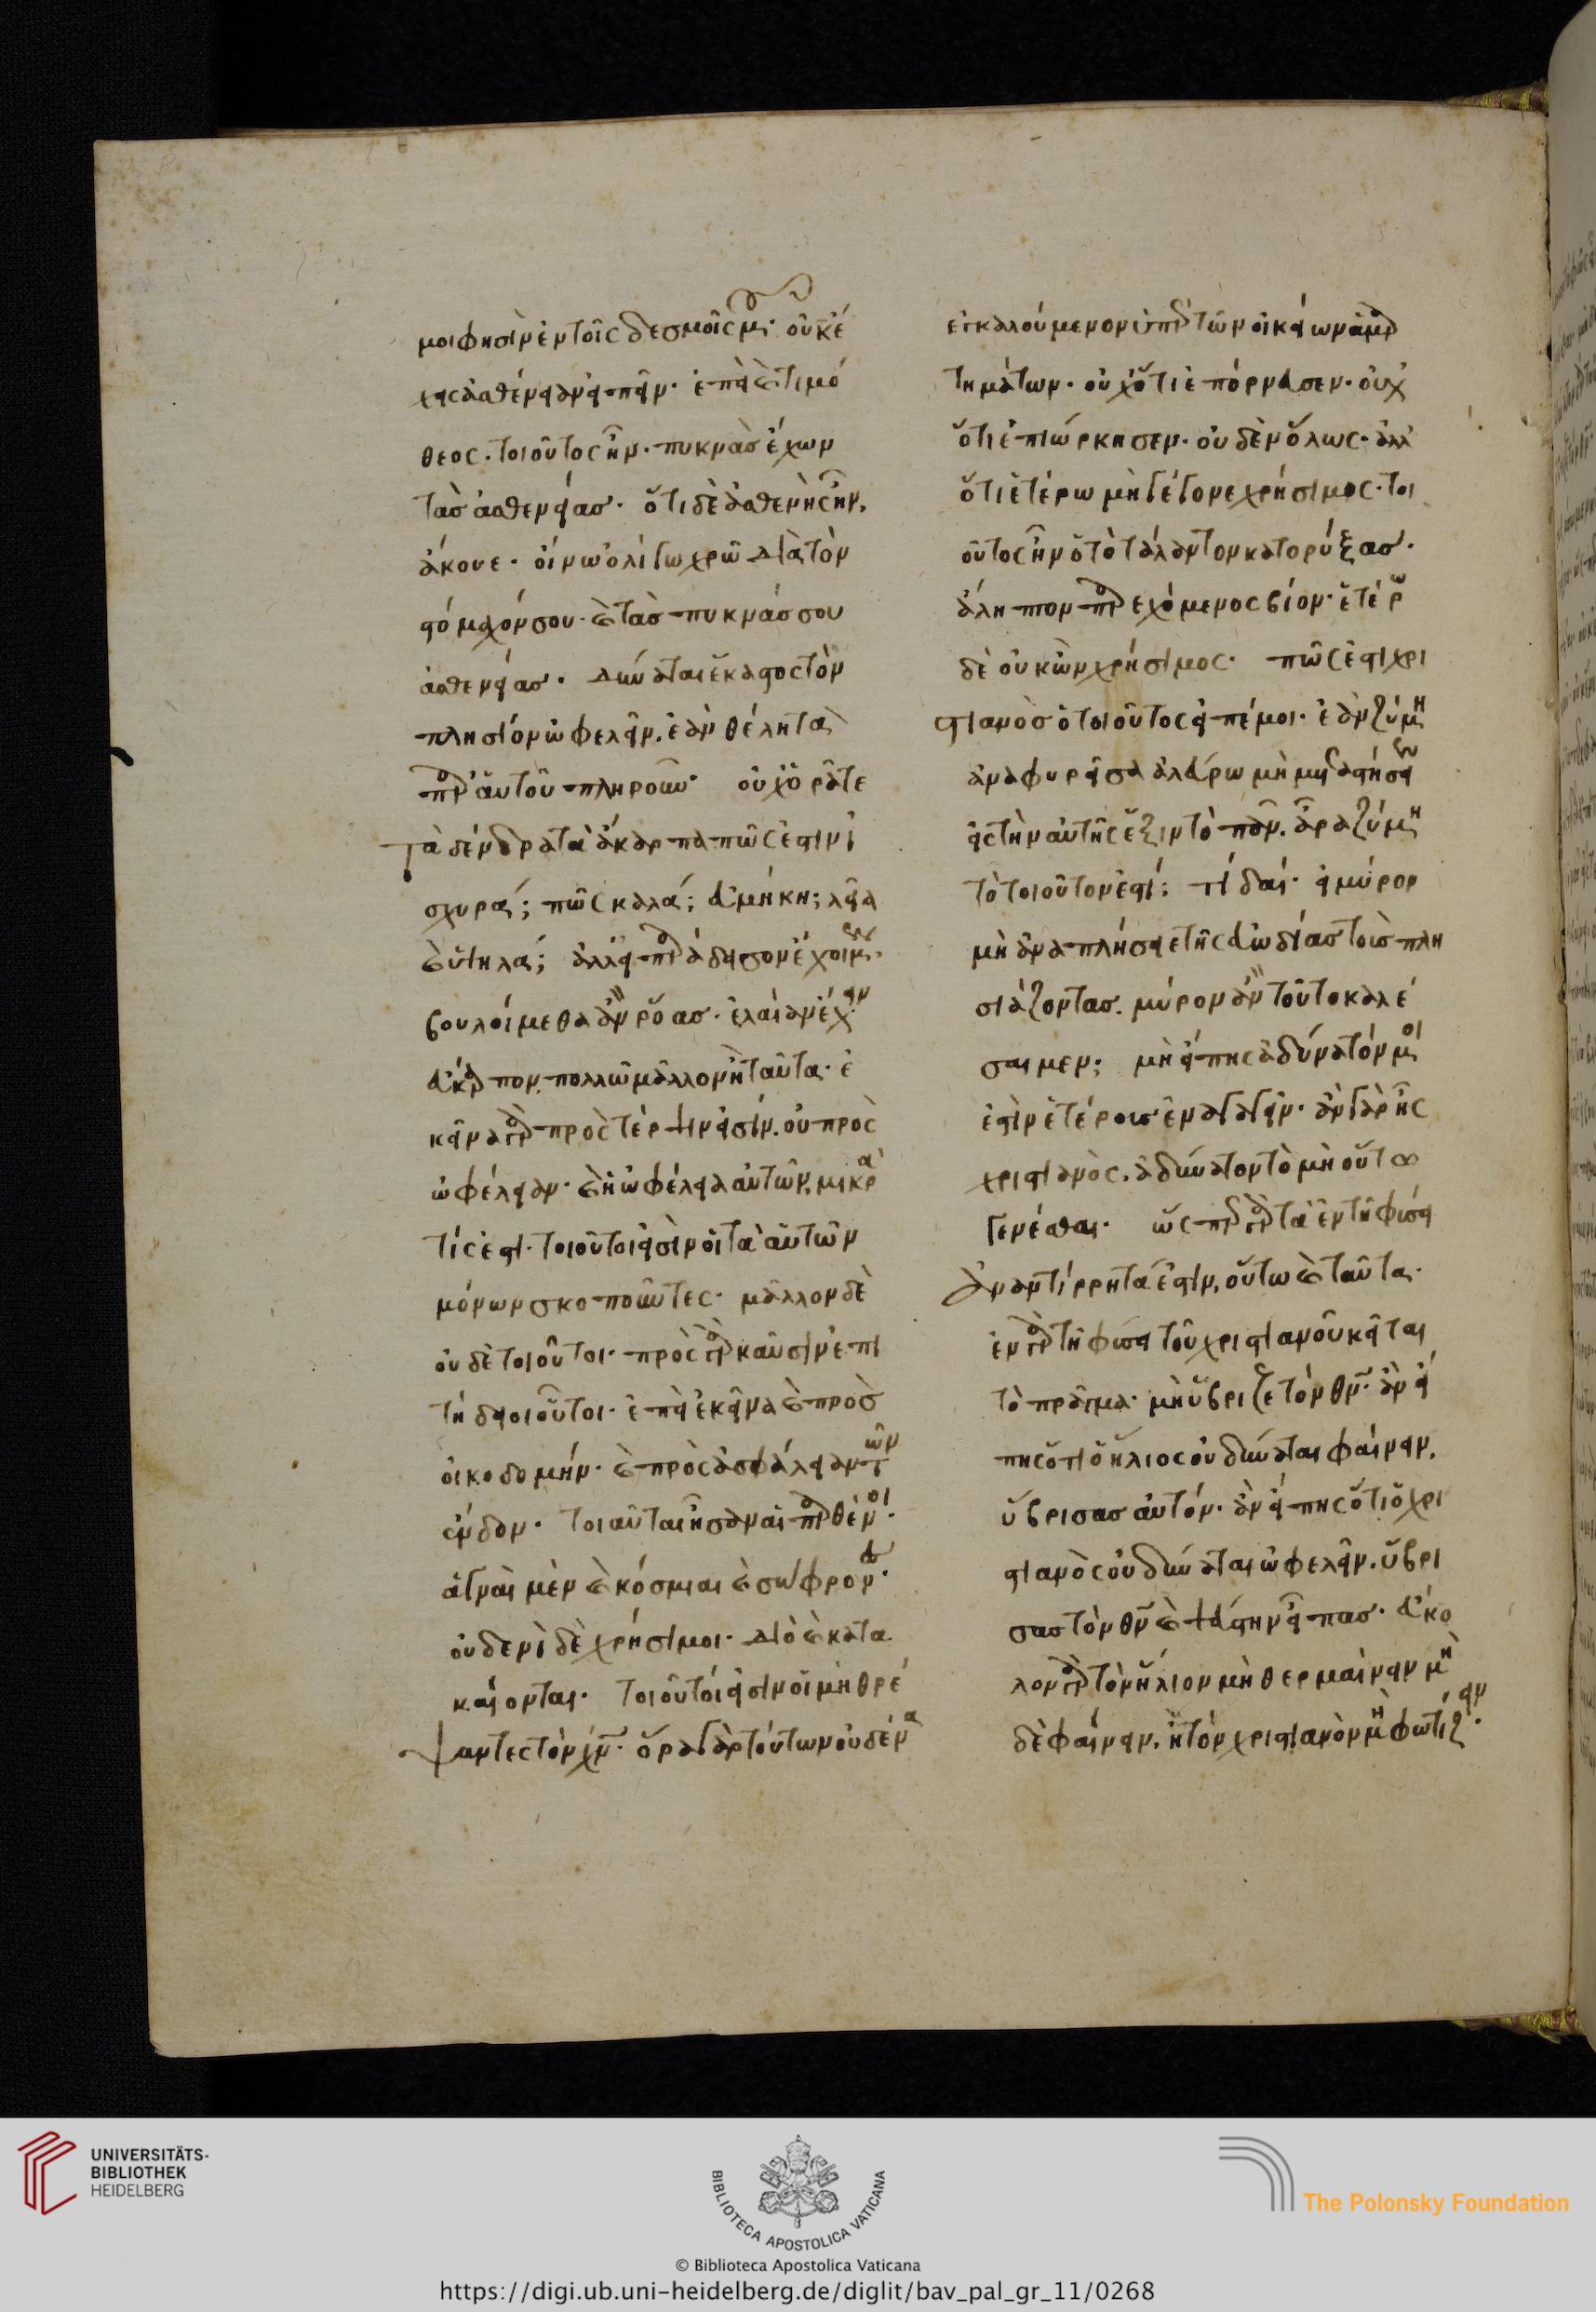 μοι φησὶν ἐν τοῖς δεσμοῖς μου· οὐκ ἔ
χεις ἀσθένειαν εἰπεῖν· ἐπεὶ καὶ τιμό
θεος· τοιοῦτος ἦν· πυκνὰσ ἔχων
τὰσ ἀσθενείασ· ὅτι δὲ ἀσθενὴς ἦν,
ἄκουε· οἴνω ὀλίγω χρῶ διὰ τὸν
στόμαχόν σου· καὶ τὰσ πυκνάσ σου
ἀσθενείασ· δύναται ἕκαστος τὸν
πλησίον ὠφελεῖν, ἐὰν θέλη τὰ
παρ' ἑαυτοῦ πληροῦν· οὐχ ὁρᾶτε
τὰ δένδρα τὰ ἄκαρπα πῶς ἐστιν ἰ
σχυρά; πῶς καλά; εὐμήκη; λεῖα
καὶ ὑψηλά; ἀλλ' εἰ παράδεισον εἴχομεν,
βουλοίμεθα ἂν ῥόασ· ἐλαίαν ἔχειν
εὔκαρπον πολλῶ μᾶλλον ἢ ταῦτα· ἐ
κεῖνα γὰρ πρὸς τέρψιν εἰσίν. οὐ πρὸς
ὠφέλειαν· καὶ ἡ ὠφέλεια αὐτῶν, μικρά
τίς ἐστι· τοιοῦτοι εἰσὶν οἱ τὰ αὑτῶν
μόνων σκοποῦντες· μᾶλλον δὲ
οὐδὲ τοιοῦτοι· πρὸς γὰρ καῦσιν ἐπι
τήδειοι οὗτοι· ἐπεὶ ἐκεῖνα καὶ πρὸσ
οἰκοδομήν· καὶ πρὸς ἀσφάλειαν τῶν
ἔνδον· τοιαῦται ἦσαν αἱ παρθένοι·
ἁγναὶ μὲν καὶ κόσμιαι καὶ σώφρονες·
οὐδενὶ δὲ χρήσιμοι· διὸ καὶ κατα
καίονται· τοιοῦτοί εἰσιν οἱ μὴ θρέ
ψαντες τὸν χν· ὅρα γὰρ τούτων οὐδένα
ἐγκαλούμενον ὑπὲρ τῶν οἰκείων ἁμαρ
τημάτων· οὐχ ὅτι ἐπόρνευσεν· οὐχ
ὅτι ἐπιώρκησεν· οὐδὲν ὅλως· ἀλλ'
ὅτι ἑτέρω μὴ γέγονε χρήσιμος· τοι
οῦτος ἦν ὁ τὸ τάλαντον κατορύξασ·
ἄληπτον παρεχόμενος βίον· ἑτέρω
δὲ οὐκ ὢν χρήσιμος· πῶς ἐστι χρι
στιανὸσ ὁ τοιοῦτος εἰπέ μοι· ἐὰν ζύμη
ἀναφυρεῖσα ἀλεύρω μὴ μεταστήση
εἰς τὴν αὑτῆς ἕξιν τὸ πᾶν. ἆρα ζύμη
τὸ τοιοῦτον ἐστί; τί δαί· εἰ μύρον
μὴ ἀναπλήσειε τῆς εὐωδίασ τοὺσ πλη
σιάζοντασ. μύρον ἂν τοῦτο καλέ
σαιμεν; μὴ εἴπης ἀδύνατόν μοί
ἐστιν ἑτέρουσ ἐναγαγεῖν· ἂν γὰρ ἦς
χριστιανὸς, ἀδύνατον τὸ μὴ οὕτω
γενέσθαι· ὥσπερ γὰρ τὰ ἐν τῆ φύσει
ἀναντίρρητά ἐστιν, οὕτω καὶ ταῦτα·
ἐν γὰρ τῆ φύσει τοῦ χριστιανοῦ κεῖται
τὸ πρᾶγμα· μὴ ὕβριζε τὸν θν· ἂν εἴ
πης ὅτι ὁ ἥλιος οὐ δύναται φαίνειν,
ὕβρισασ αὐτόν· ἂν εἴπης ὅτι ὁ χρι
στιανὸς οὐ δύναται ὠφελεῖν, ὕβρι
σασ τὸν θν καὶ ψεύστην εἶπασ· εὔκο
λον γὰρ τὸν ἥλιον μὴ θερμαίνειν μη
δὲ φαίνειν, ἢ τὸν χριστιανὸν μὴ φωτίζειν·
UNIVERSITÄTS-
BIBLIOTHEK
HEIDELBERG
BIBLIOTECA APOSTOLICA VATICANA
The Polonsky Foundation
© Biblioteca Apostolica Vaticana
https://digi.ub.uni-heidelberg.de/diglit/bav_pal_gr_11/0268